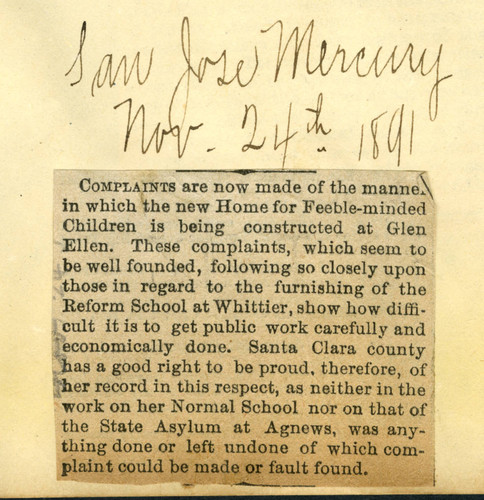 San Jose Mercury
Nov. 24th 1891
COMPLAINTS are now made of the manner
in which the new Home for Feeble-minded
Children is being constructed at Glen
Ellen. These complaints, which seem to
be well founded, following so closely upon
those in regard to the furnishing of the
Reform School at Whittier, show how diffi-
cult it is to get public work carefully and
economically done. Santa Clara county
has a good right to be proud, therefore, of
her record in this respect, as neither in the
work on her Normal School nor on that of
the State Asylum at Agnews, was any-
thing done or left undone of which com-
plaint could be made or fault found.